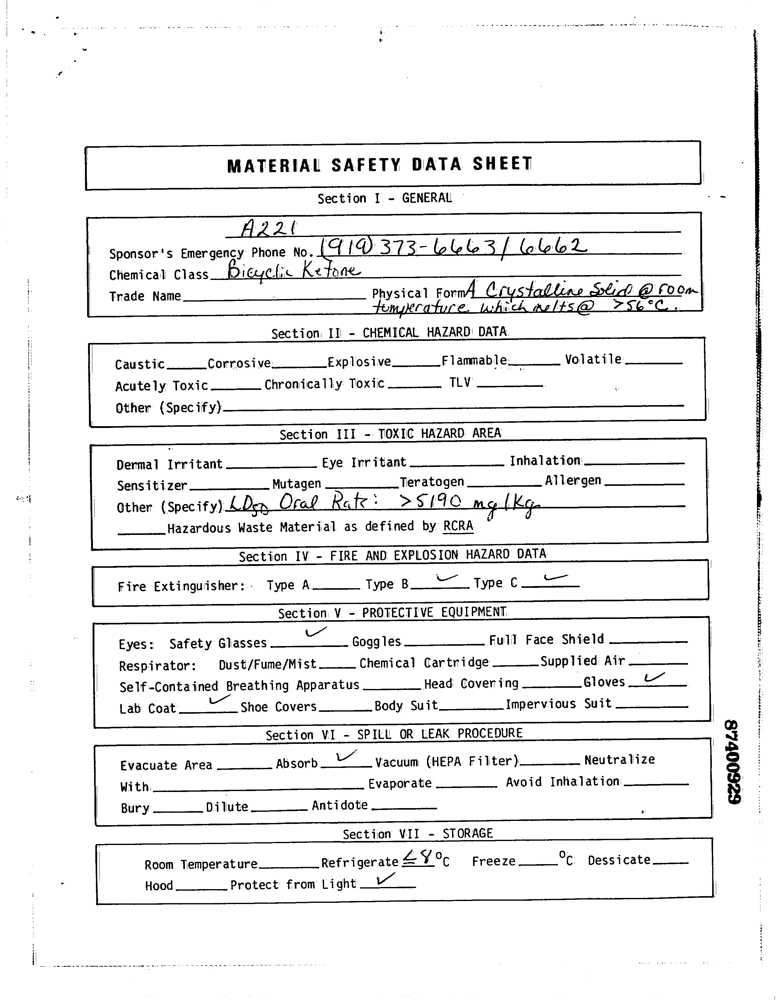 MATERIAL SAFETY DATA SHEET
Section I - GENERAL
A221
Sponsor's Emergency Phone No. (919) 373-6663/6662
Chemical Class Bicyclic Ketone
Trade Name Physical Form A Crystalline Solid @ room
temperature which melts @ >56°C.
Section II - CHEMICAL HAZARD DATA
Caustic Corrosive Explosive Flammable Volatile
Acutely Toxic Chronically Toxic TLV
Other (Specify)
Section III - TOXIC HAZARD AREA
Dermal Irritant Eye Irritant Inhalation
Sensitizer Mutagen Teratogen Allergen
Other (Specify) LD50 Oral Rats: >5190 mg/Kg
Hazardous Waste Material as defined by RCRA
Section IV - FIRE AND EXPLOSION HAZARD DATA
Fire Extinguisher: Type A Type B ✓ Type C ✓
Section V - PROTECTIVE EQUIPMENT
Eyes: Safety Glasses ✓ Goggles Full Face Shield
Respirator: Dust/Fume/Mist Chemical Cartridge Supplied Air
Self-Contained Breathing Apparatus Head Covering Gloves ✓
Lab Coat ✓ Shoe Covers Body Suit Impervious Suit
Section VI - SPILL OR LEAK PROCEDURE
Evacuate Area Absorb ✓ Vacuum (HEPA Filter) Neutralize
With Evaporate Avoid Inhalation
Bury Dilute Antidote
Section VII - STORAGE
Room Temperature Refrigerate ≤8°C Freeze °C Dessicate
Hood Protect from Light ✓
87400929